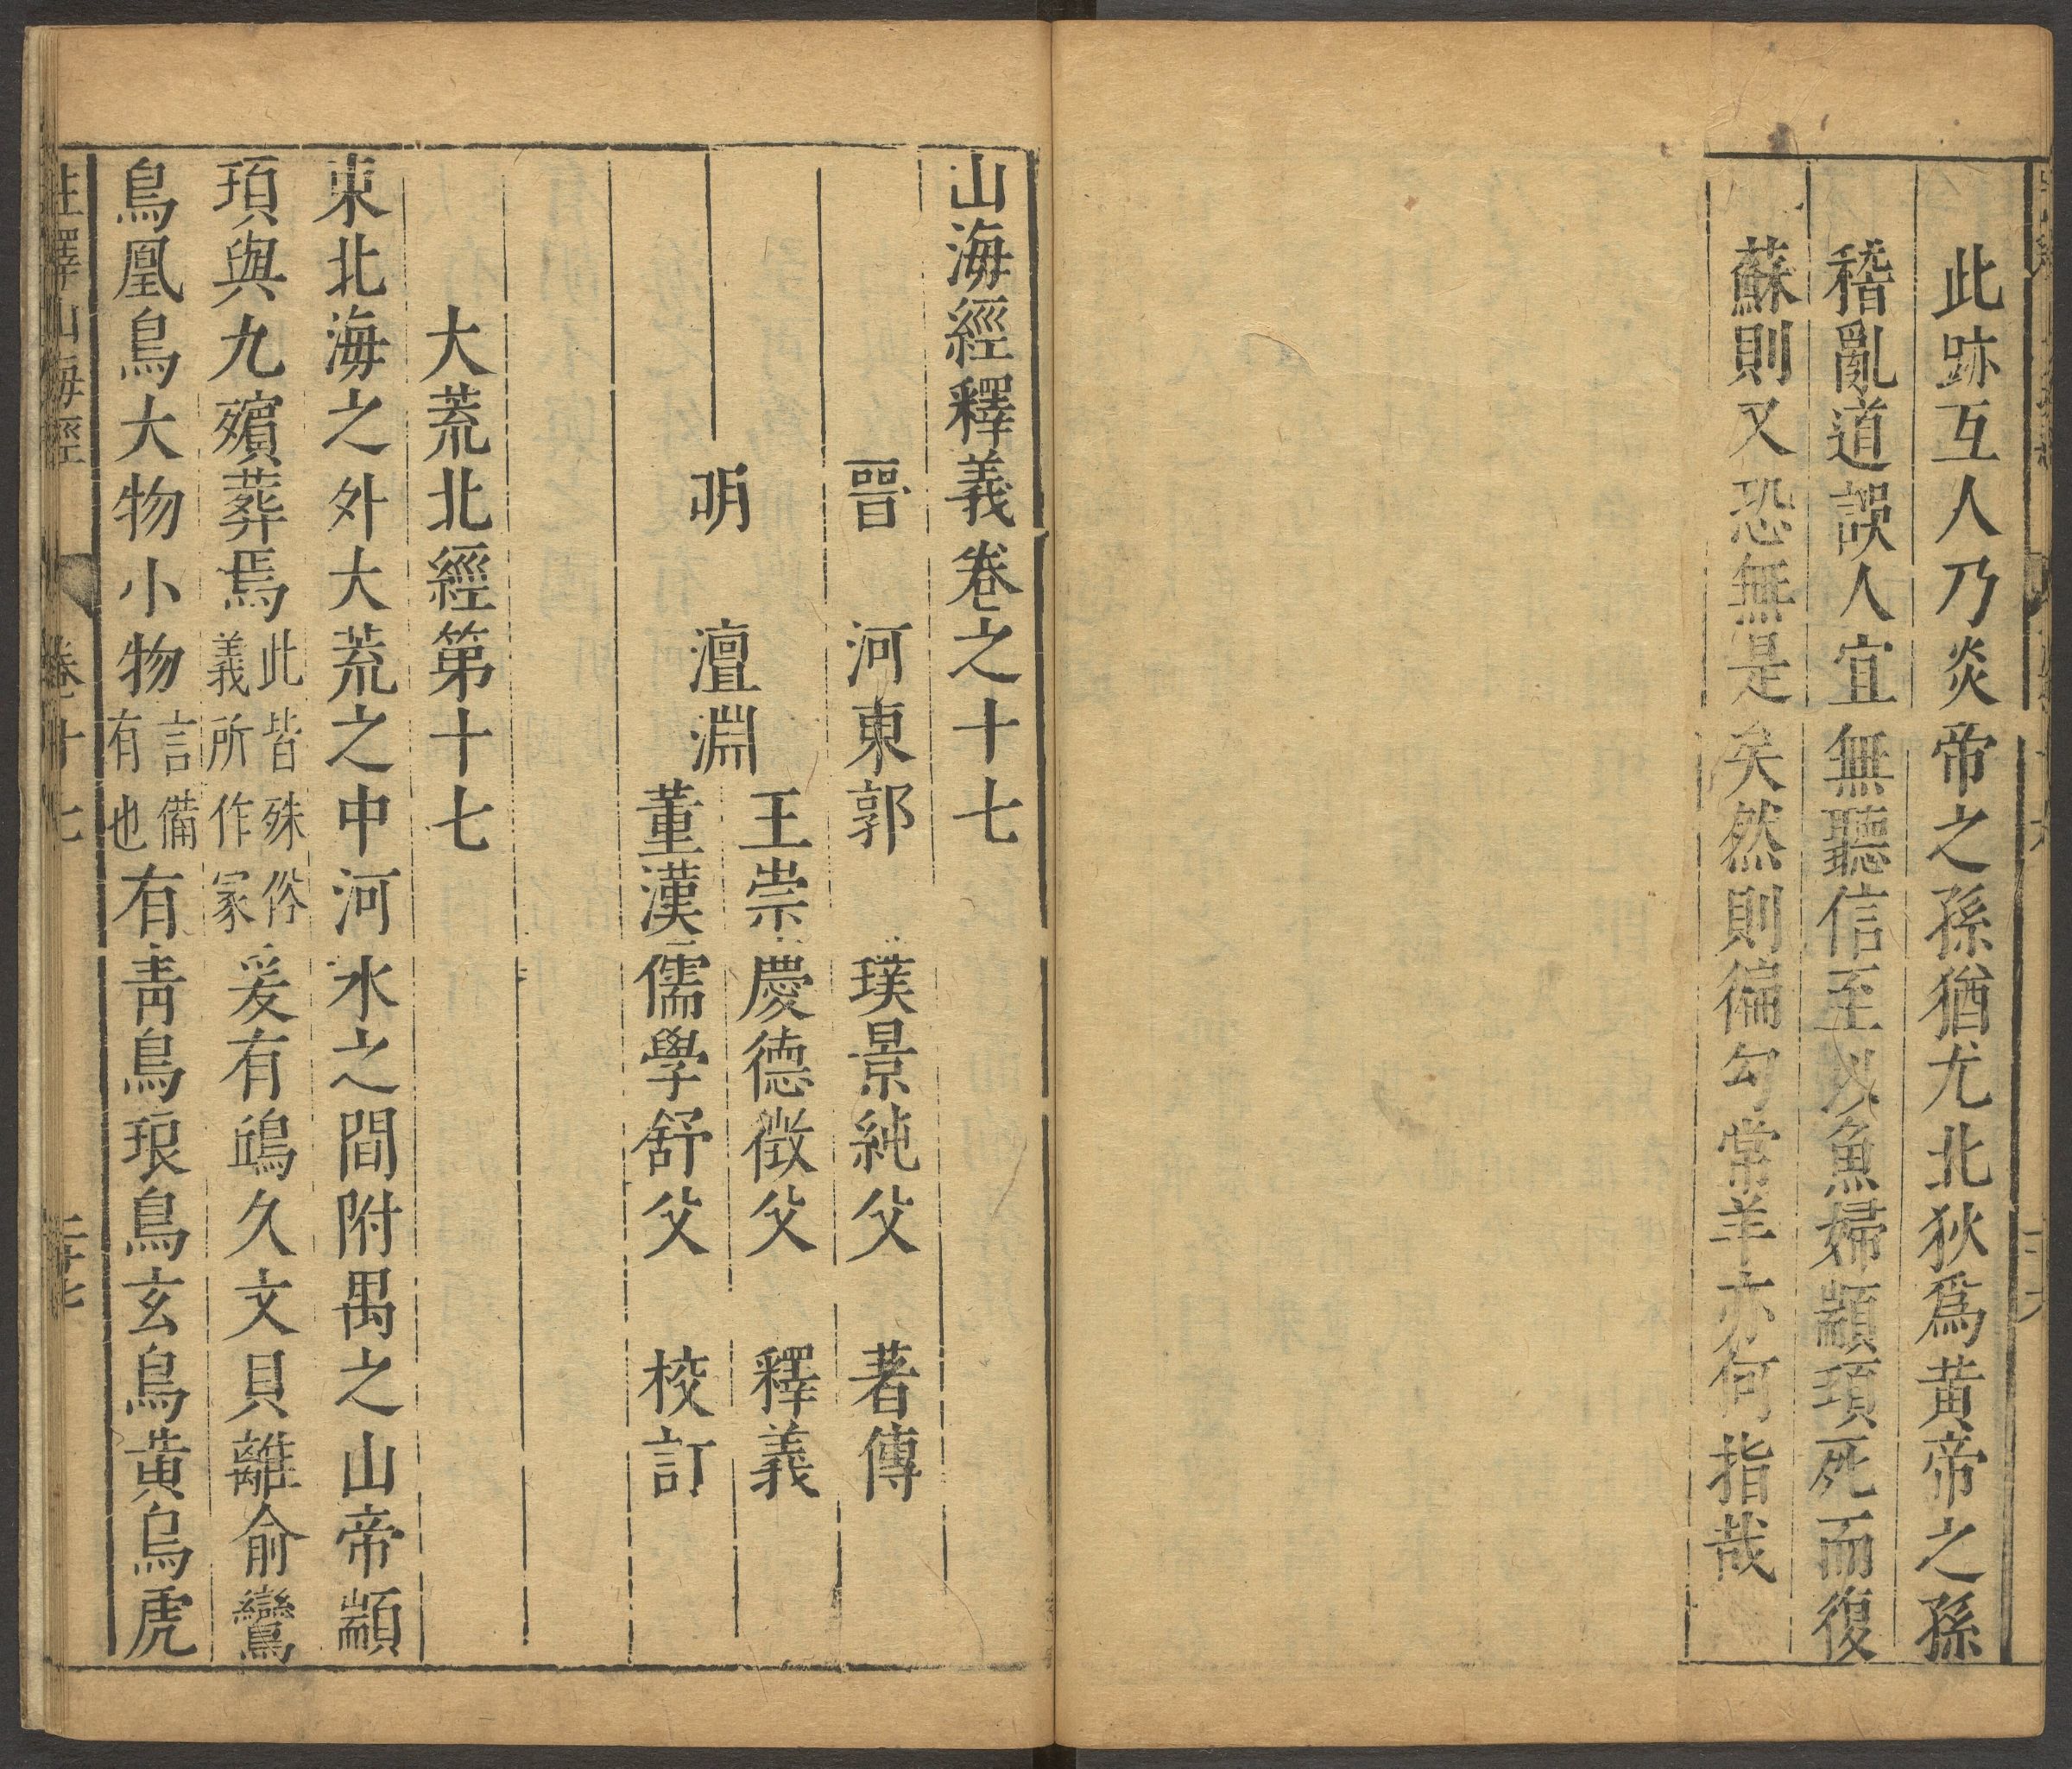 此跡互人乃炎帝之孫猶尤北狄爲黃帝之孫
稽亂道誤人宜無聽信至以魚婦顓頊死而復
蘇則又恐無是矣然則徧勾常羊亦何指哉
山海經釋義卷之十七
晉 河東郭 璞景純父 著傳
明 澶淵
王崇慶德徵父 釋義
董漢儒學舒父 校訂
大荒北經第十七
東北海之外大荒之中河水之間附禺之山帝顓
頊與九嬪葬焉此皆殊俗義所作冢爰有鴟久文貝離俞鸞
鳥凰鳥大物小物言備有也有青鳥琅鳥玄鳥黃鳥虎
註釋山海經 卷十七